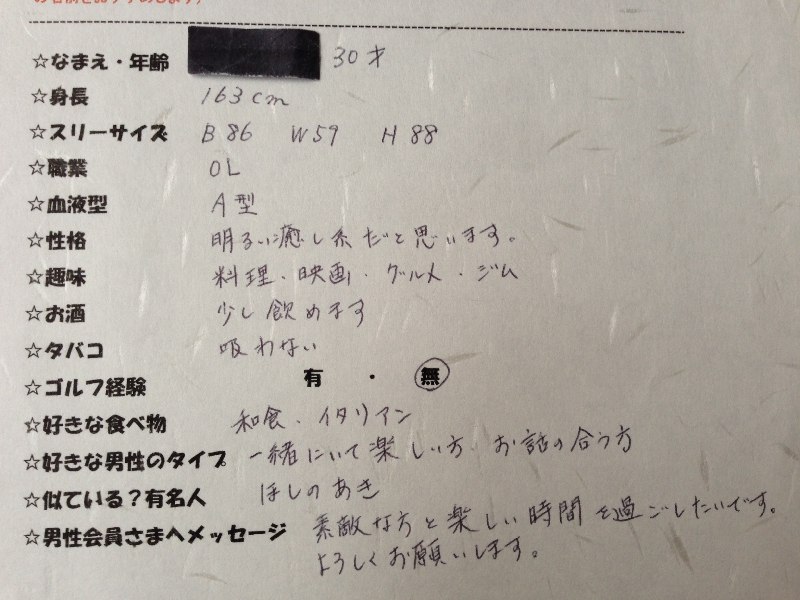 ☆なまえ・年齢 30才
☆身長 163cm
☆スリーサイズ B 86 W 59 H 88
☆職業 OL
☆血液型 A型
☆性格 明るい癒し系だと思います。
☆趣味 料理・映画・グルメ・ジム
☆お酒 少し飲めます
☆タバコ 吸わない
☆ゴルフ経験 有・無
☆好きな食べ物 和食、イタリアン
☆好きな男性のタイプ 一緒にいて楽しい方、お話の合う方
☆似ている?有名人 ほしのあき
☆男性会員さまへメッセージ 素敵な方と楽しい時間を過ごしたいです。
よろしくお願いします。